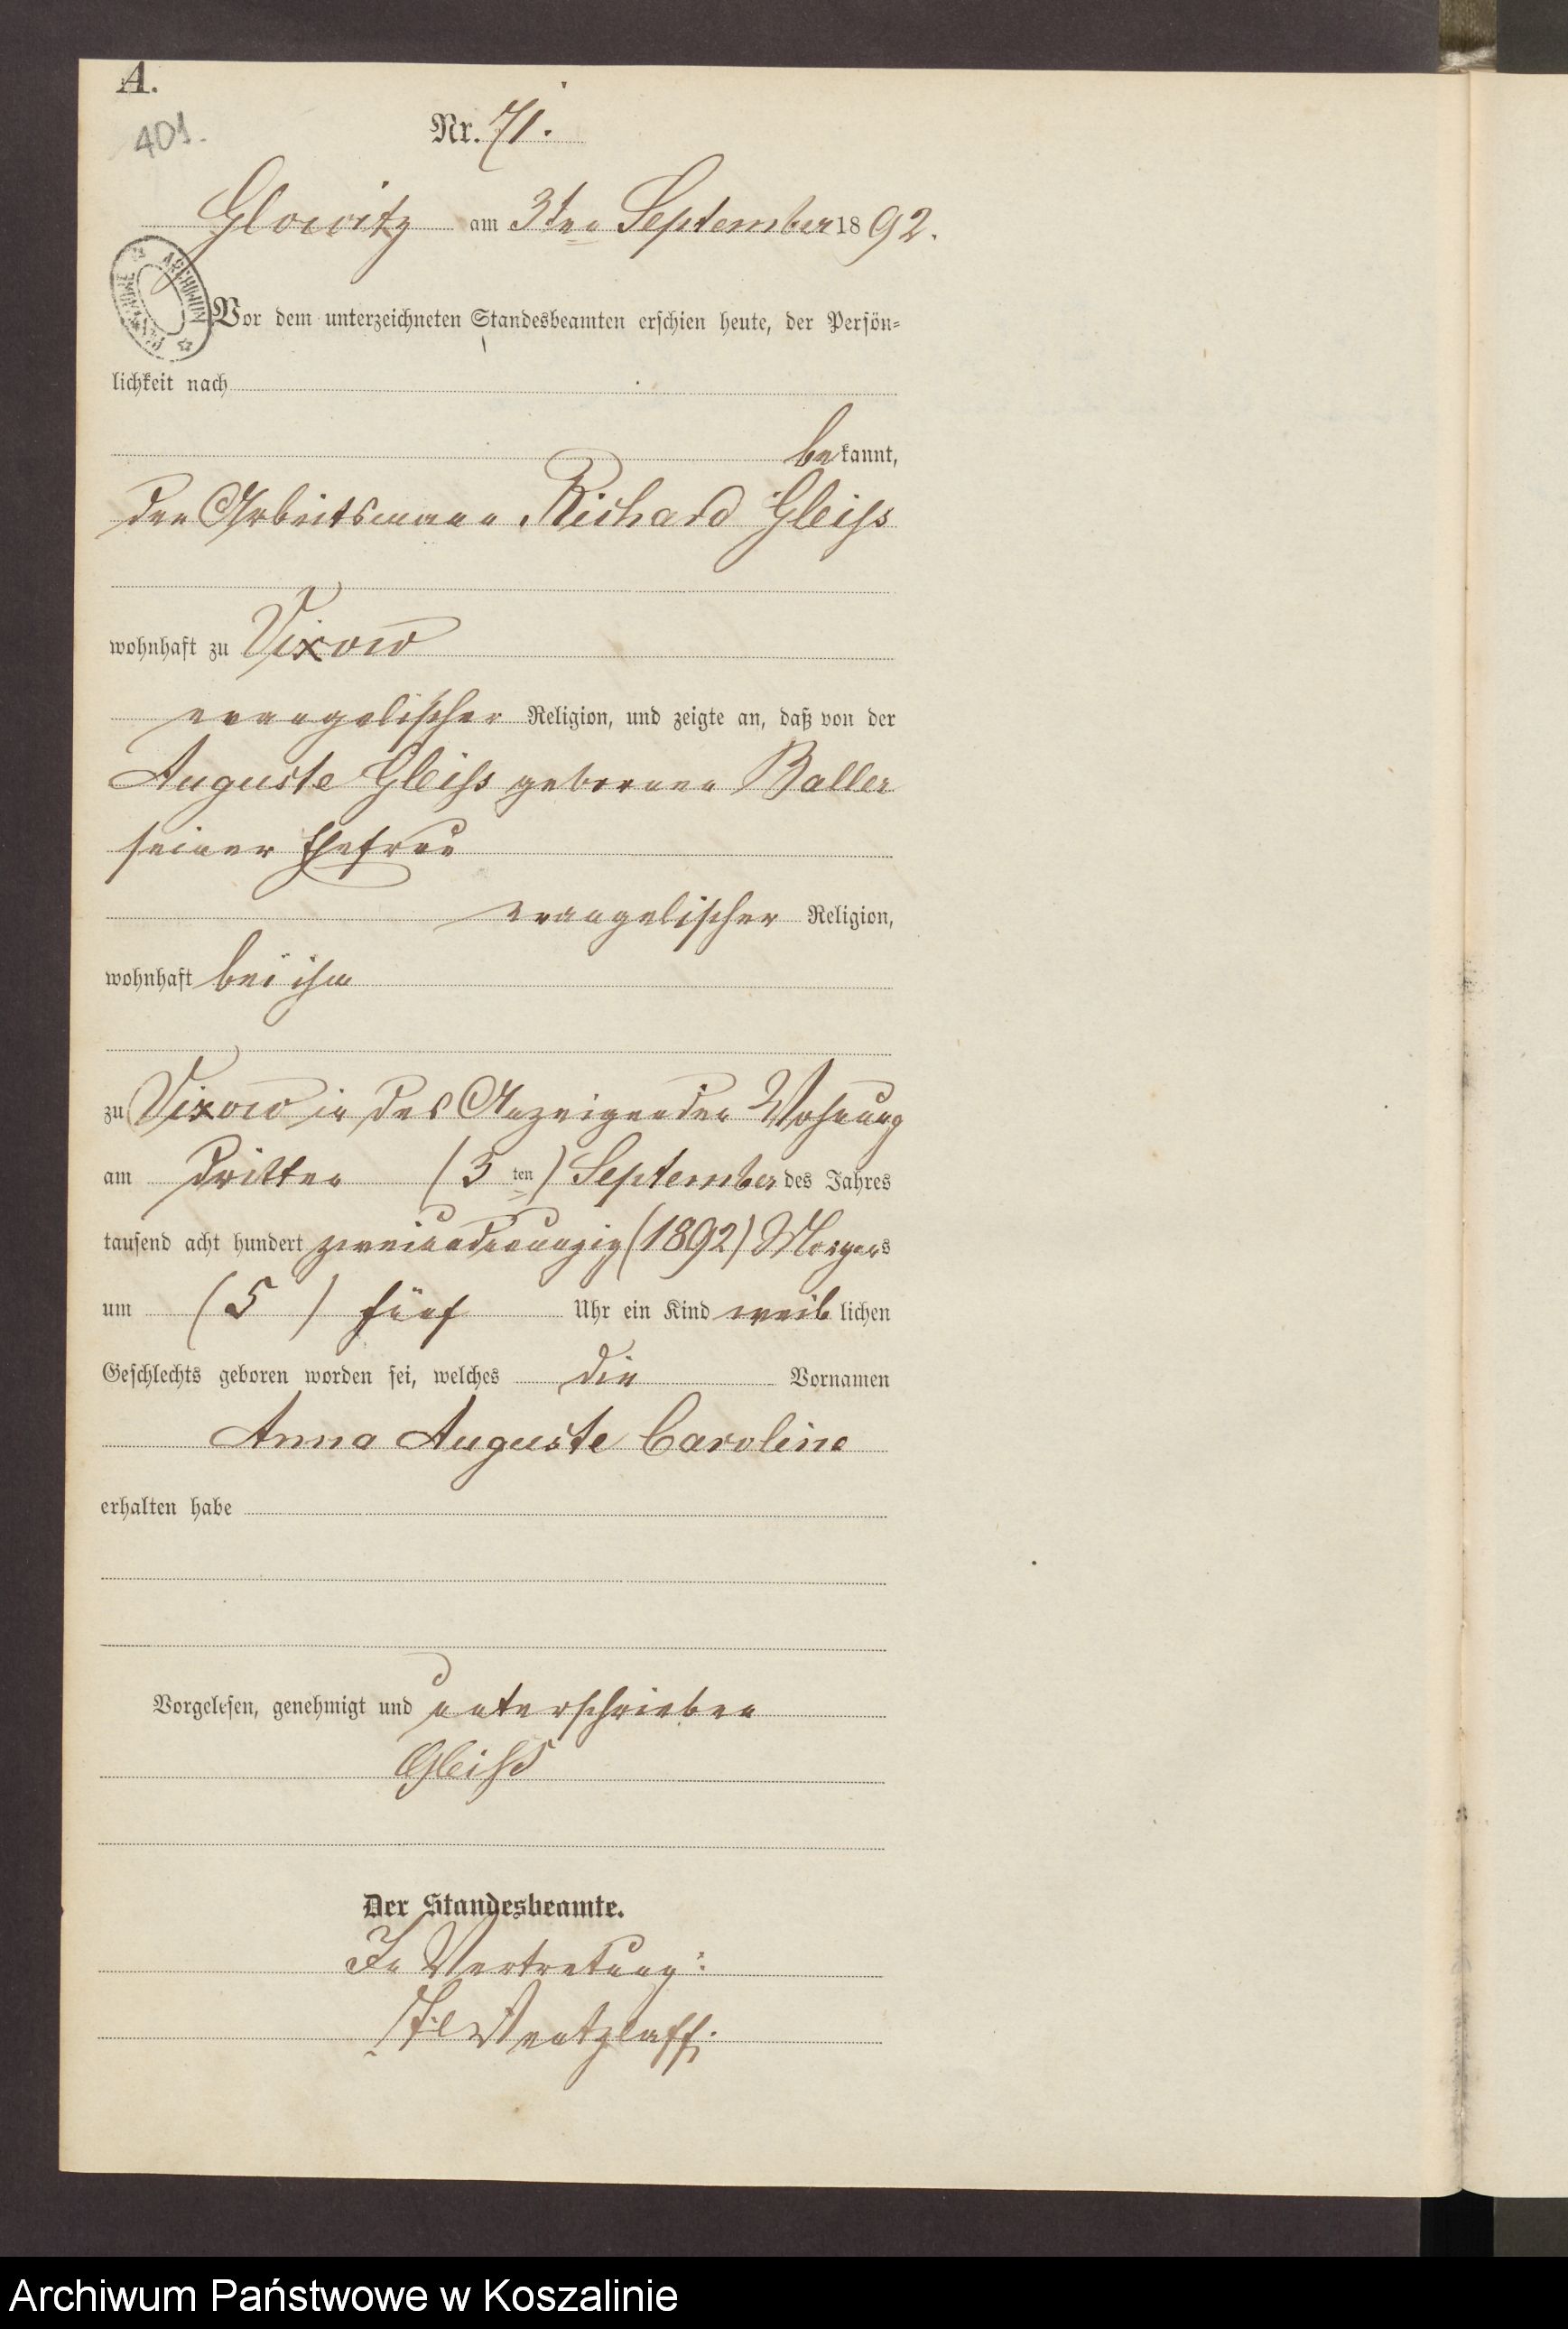 A.
401.
Nr. 71.
Glowitz am 3ten September 1892.
ARCHIWUM PAŃSTWOWE
Vor dem unterzeichneten Standesbeamten erschien heute, der Persön-
lichkeit nach
bekannt,
der Arbeitsmann Richard Gleiss
wohnhaft zu Vixow
evangelischer Religion, und zeigte an, daß von der
Auguste Gleiss geborenen Baller
seiner Ehefrau
evangelischer Religion,
wohnhaft bei ihm
zu Vixow in des Anzeigenden Wohnung
am dritten (3 ten) September des Jahres
tausend acht hundert zweiundneunzig (1892) Morgens
um (5) fünf Uhr ein Kind weiblichen
Geschlechts geboren worden sei, welches die Vornamen
Anna Auguste Caroline
erhalten habe
Vorgelesen, genehmigt und unterschrieben
Gleiss
Der Standesbeamte.
In Vertretung:
Wentzlaff.
Archiwum Państwowe w Koszalinie